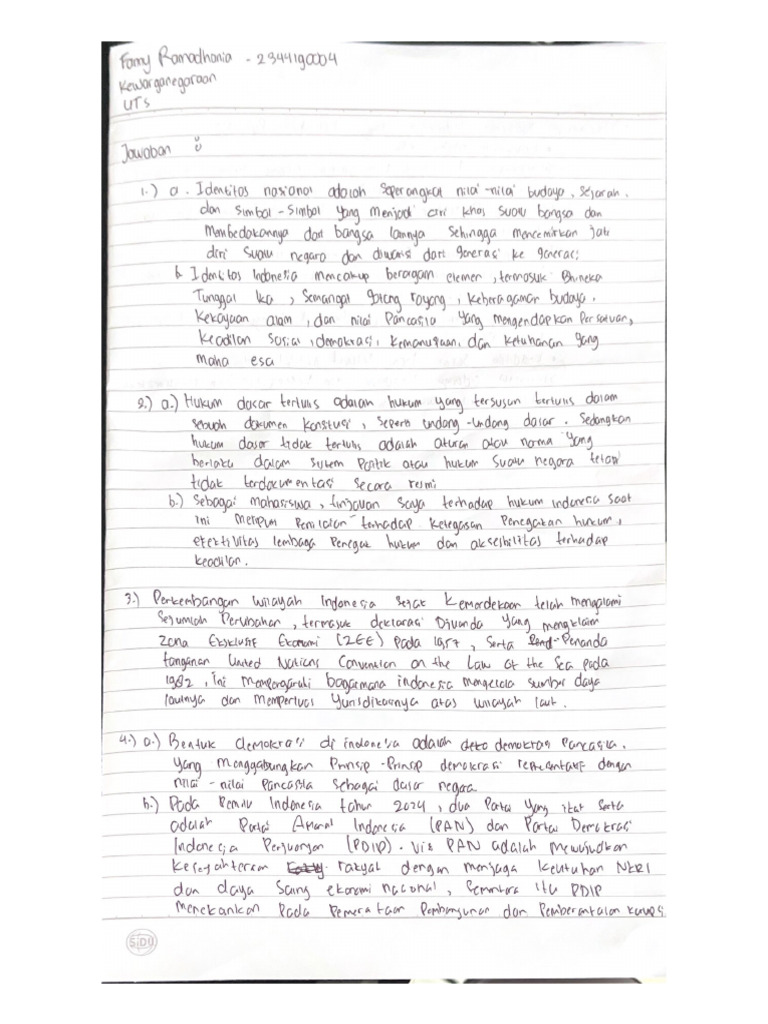 Fanny Ramadhania - 2344190004
Kewarganegaraan
UTS
Jawaban :
1.) a. Identitas nasional adalah seperangkat nilai-nilai budaya, sejarah,
dan simbol-simbol yang menjadi ciri khas suatu bangsa dan
membedakannya dari bangsa lainnya sehingga mencemirkan jati
diri suatu negara dan diwarisi dari generasi ke generasi
b. Identitas Indonesia mencakup beragam elemen, termasuk Bhineka
Tunggal Ika, semangat gotong royong, keberagaman budaya,
kekayaan alam, dan nilai Pancasila yang mengendapkan Persatuan,
keadilan sosial, demokrasi, kemanusiaan, dan ketuhanan yang
maha esa
2.) a.) Hukum dasar tertulis adalah hukum yang tersusun tertulis dalam
sebuah dokumen konstitusi, seperti undang-undang dasar. Sedangkan
hukum dasar tidak tertulis adalah aturan atau norma yang
berlaku dalam sistem Politik atau hukum suatu negara tetapi
tidak terdokumentasi secara resmi
b.) Sebagai mahasiswa, tinjauan saya terhadap hukum indonesia saat
ini meliputi Penilaian terhadap ketegasan Penegakan hukum,
efektivitas lembaga Penegak hukum dan aksesibilitas terhadap
keadilan.
3.) Perkembangan wilayah Indonesia sejak kemerdekaan telah mengalami
sejumlah Perubahan, termasuk deklarasi Djuanda yang mengklaim
Zona Eksklusif Ekonomi (ZEE) Pada 1957, serta Penanda
tanganan United Nations Convention on the Law of the Sea pada
1982, ini mempengaruhi bagaimana indonesia mengelola sumber daya
lautnya dan memperluas Yurisdiksinya atas wilayah laut.
4.) a.) Bentuk demokrasi di indonesia adalah demokrasi Pancasila,
yang menggabungkan Prinsip-Prinsip demokrasi representatif dengan
nilai-nilai Pancasila sebagai dasar negara
b.) Pada Pemilu Indonesia tahun 2024, dua Partai yang ikut serta
adalah Partai Amanat Indonesia (PAN) dan Partai Demokrasi
Indonesia Perjuangan (PDIP). Visi PAN adalah mewujudkan
kesejahteraan rakyat dengan menjaga keutuhan NKRI
dan daya saing ekonomi nasional, sementara itu PDIP
menekankan Pada Pemerataan Pembangunan dan Pemberantasan korupsi
SiDU